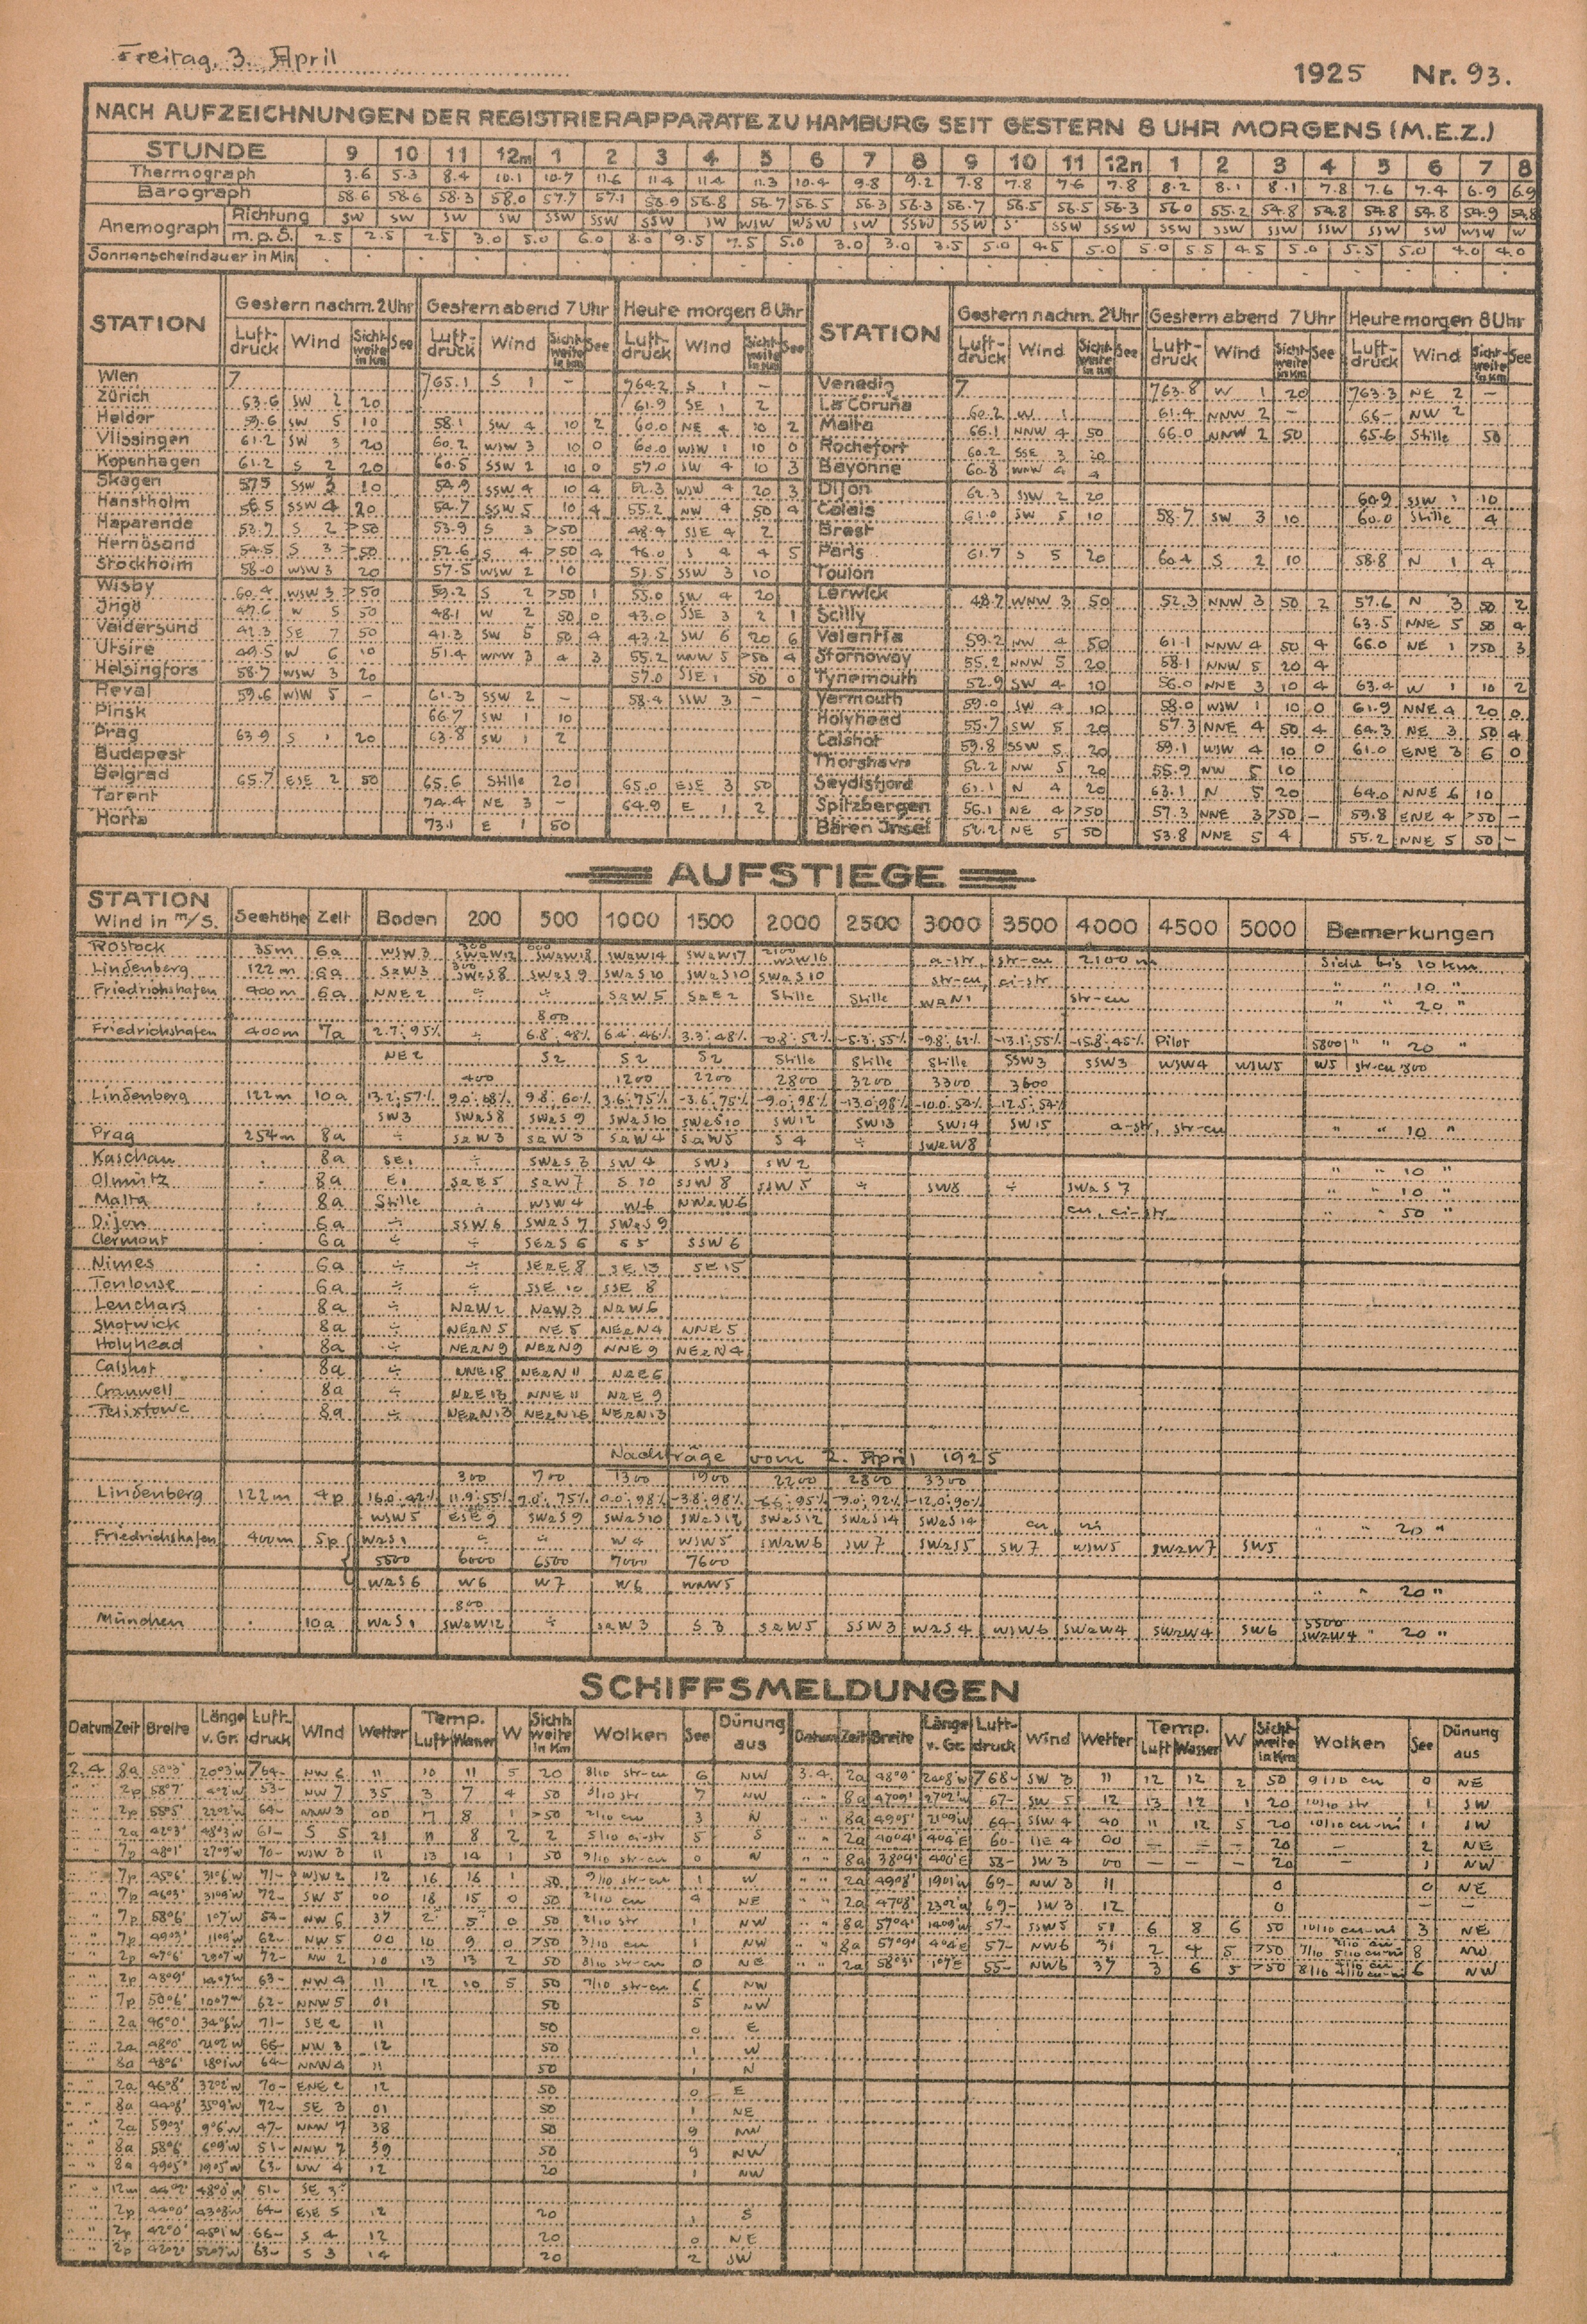 Freitag, 3. April
1925 Nr. 93.
NACH AUFZEICHNUNGEN DER REGISTRIERAPPARATE ZU HAMBURG SEIT GESTERN 8 UHR MORGENS (M.E.Z.)
STUNDE 9 10 11 12m 1 2 3 4 5 6 7 8 9 10 11 12n 1 2 3 4 5 6 7 8
Thermograph 3.6 5.3 8.4 10.1 10.7 11.6 11.4 11.4 11.3 10.4 9.8 9.2 7.8 7.8 7.6 7.8 8.2 8.1 8.1 7.8 7.6 7.4 6.9 6.9
Barograph 58.6 58.6 58.3 58.0 57.7 57.1 56.9 56.8 56.7 56.5 56.3 56.3 56.7 56.5 56.5 56.3 56.0 55.2 54.8 54.8 54.8 54.8 54.9 54.8
Anemograph Richtung SW SW SW SW SSW SSW SSW SW WSW WSW SW SSW SSW S SSW SSW SSW SSW SSW SSW SSW SW WSW W
m.p.S. 2.5 2.5 2.5 3.0 5.0 6.0 8.0 9.5 7.5 5.0 3.0 3.0 3.5 5.0 4.5 5.0 5.0 5.5 4.5 5.0 5.5 5.0 4.0 4.0
Sonnenscheindauer in Min
STATION Gestern nachm. 2 Uhr Gestern abend 7 Uhr Heute morgen 8 Uhr STATION Gestern nachm. 2 Uhr Gestern abend 7 Uhr Heute morgen 8 Uhr
Luftdruck Wind Sichtweite in Km See Luftdruck Wind Sichtweite in Km See Luftdruck Wind Sichtweite in Km See Luftdruck Wind Sichtweite in Km See Luftdruck Wind Sichtweite in Km See Luftdruck Wind Sichtweite in Km See
Wien 7 765.1 S 1 – 764.2 S 1 – Venedig 7 763.8 W 1 20 763.3 NE 2 –
Zürich 63.6 SW 2 20 61.9 SE 1 2 La Coruña 60.2 W 1 61.4 NNW 2 – 66– NW 2
Helder 59.6 SW 5 10 58.1 SW 4 10 2 60.0 NE 4 10 2 Malta 66.1 NNW 4 50 66.0 NNW 2 50 65.6 Stille 50
Vlissingen 61.2 SW 3 20 60.2 WSW 3 10 0 60.0 WSW 1 10 0 Rochefort 60.2 SSE 3 20
Kopenhagen 61.2 S 2 20 60.5 SSW 2 10 0 57.0 SW 4 10 3 Bayonne 60.8 WNW 4 4
Skagen 57.5 SSW 3 10 54.9 SSW 4 10 4 52.3 WSW 4 20 3 Dijon 62.3 SSW 2 20 60.9 SSW 1 10
Hanstholm 56.5 SSW 4 20 54.7 SSW 5 10 4 55.2 NW 4 50 4 Calais 61.0 SW 5 10 58.7 SW 3 10 60.0 Stille 4
Haparanda 53.7 S 2 >50 53.9 S 3 >50 48.4 SSE 4 2 Brest
Hernösand 54.5 S 3 >50 52.6 S 4 >50 4 46.0 S 4 4 5 Paris 61.7 S 5 20 60.4 S 2 10 58.8 N 1 4
Stockholm 58.0 WSW 3 20 57.5 WSW 2 10 51.5 SSW 3 10 Toulon
Wisby 60.4 WSW 3 >50 59.2 S 2 >50 1 55.0 SW 4 20 Lerwick 48.7 WNW 3 50 52.3 NNW 3 50 2 57.6 N 3 50 2
Jngö 47.6 W 5 50 48.1 W 2 50 0 43.0 SSE 3 2 1 Scilly 63.5 NNE 5 50 4
Valdersund 41.3 SE 7 50 41.3 SW 5 50 4 43.2 SW 6 20 6 Valentia 59.2 NW 4 50 61.1 NNW 4 50 4 66.0 NE 1 >50 3
Utsire 49.5 W 6 10 51.4 WNW 3 4 3 55.2 WNW 5 >50 4 Stornoway 55.2 NNW 5 20 58.1 NNW 5 20 4
Helsingfors 58.7 WSW 3 20 57.0 SSE 1 50 0 Tynemouth 52.9 SW 4 10 56.0 NNE 3 10 4 63.4 W 1 10 2
Reval 59.6 WSW 5 – 61.3 SSW 2 – 58.4 SSW 3 – Yarmouth 59.0 SW 4 10 58.0 WSW 1 10 0 61.9 NNE 4 20 0
Pinsk 66.7 SW 1 10 Holyhead 55.7 SW 5 20 57.3 NNE 4 50 4 64.3 NE 3 50 4
Prag 63.9 S 1 20 63.8 SW 1 2 Calshot 59.8 SSW 5 20 59.1 WSW 4 10 0 61.0 ENE 3 6 0
Budapest Thorshavn 52.2 NW 5 20 55.9 NW 5 10
Belgrad 65.7 ESE 2 50 65.6 Stille 20 65.0 ESE 3 50 Seydisfjord 61.1 N 4 20 63.1 N 5 20 64.0 NNE 6 10
Tarent 74.4 NE 3 – 64.9 E 1 2 Spitzbergen 56.1 NE 4 >50 57.3 NNE 3 >50 – 59.8 ENE 4 >50 –
Horta 73.1 E 1 50 Bären Jnsel 52.2 NE 5 50 53.8 NNE 5 4 55.2 NNE 5 50 –
AUFSTIEGE
STATION Wind in m/S. Seehöhe Zeit Boden 200 500 1000 1500 2000 2500 3000 3500 4000 4500 5000 Bemerkungen
Rostock 35m 6a WSW 3 SWaW12 SWaW18 SWaW14 SWaW17 2100 WSW16 a-str, str-cu 2100 m Sicht bis 10 km
Lindenberg 122m 6a SaW3 300 SWaS8 SWaS 9 SWaS 10 SWaS10 SWaS 10 str-cu, ci-str " " 10 "
Friedrichshafen 400m 6a NNE 2 ÷ ÷ SaW 5 SaE 2 Stille Stille WaN1 str-cu " " 20 "
800
Friedrichshafen 400m 7a 2.7; 95% ÷ 6.8; 48% 6.4; 46% 3.3; 48% -0.8; 52% -5.3; 55% -9.8; 62% -13.1; 55% -15.8; 45% Pilot 5800 " " 20 "
NE 2 S2 S 2 S2 Stille Stille Stille SSW3 SSW3 WSW4 WSW5 W5 str-cu 800
400 1200 2200 2800 3200 3300 3600
Lindenberg 122m 10a 13.2; 57% 9.0; 68% 9.8; 60% 3.6; 75% -3.6; 75% -9.0; 98% -13.0; 98% -10.0; 54% -12.5; 54%
SW3 SWaS8 SWaS 9 SWaS10 SWaS10 SW12 SW13 SW14 SW15 a-str, str-cu " " 10 "
Prag 254m 8a ÷ SaW 3 SaW 3 SaW 4 SaW5 S 4 ÷ SWaW8
Kaschau 8a SE1 ÷ SWaS 3 SW 4 SW5 SW 2 " " 10 "
Olmütz 8a E1 SaE 5 SaW 7 S 10 SSW 8 SSW 5 ÷ SW8 ÷ SWaS 7 " " 10 "
Malta 8a Stille WSW 4 W6 NWaW6 cu, ci-str " " 50 "
Dijon 6a ÷ SSW 6 SWaS 7 SWaS 9
Clermont 6a ÷ ÷ SEaS 6 S 5 SSW 6
Nimes 6a ÷ ÷ SEaE 8 SE 13 SE 15
Toulouse 6a ÷ ÷ SSE 10 SSE 8
Leuchars 8a ÷ NaW2 NaW3 NaW6
Shotwick 8a ÷ NEaN 5 NE 5 NEaN4 NNE 5
Holyhead 8a ÷ NEaN9 NEaN9 NNE 9 NEaN4
Calshot 8a ÷ NNE 18 NEaN 11 NaE6
Cranwell 8a ÷ NaE13 NNE 11 NaE 9
Felixtowe 8a ÷ NEaN13 NEaN16 NEaN13
Nachträge vom 2. April 1925
300 700 1300 1900 2200 2800 3300
Lindenberg 122m 4p 16.0; 42% 11.9; 55% 7.0; 75% 0.0; 98% -3.8; 98% -6.6; 95% -9.0; 92% -12.0; 90%
WSW 5 ESE 9 SWaS 9 SWaS10 SWaS12 SWaS12 SWaS14 SWaS14 cu ni " " 20 "
Friedrichshafen 400m 5p WaS1 ÷ ÷ W 4 WSW5 SWaW6 SW 7 SWaS5 SW 7 WSW5 SWaW7 SW5
5500 6000 6500 7000 7600
WaS 6 W6 W7 W6 WNW5 " " 20 "
800
München 10a WaS 1 SWaW12 ÷ SaW 3 S 3 SaW 5 SSW 3 WaS 4 WSW6 SWaW4 SWaW4 SW6 5500 SWaW4 " 20 "
SCHIFFSMELDUNGEN
Datum Zeit Breite Länge v. Gr. Luftdruck Wind Wetter Temp. Luft Wasser W Sichtweite in Km Wolken See Dünung aus Datum Zeit Breite Länge v. Gr. Luftdruck Wind Wetter Temp. Luft Wasser W Sichtweite in Km Wolken See Dünung aus
2.4 8a 50°3' 20°3'W 764– NW 6 11 10 11 5 20 8/10 str-cu 6 NW 3.4. 2a 48°9' 20°8'W 768– SW 3 11 12 12 2 50 9/10 cu 0 NE
" " 2p 58°7' 4°2'W 53– NW 7 35 3 7 4 50 7 NW " " 8a 47°9' 27°2'W 67– SW 5 12 13 12 1 20 10/10 str 1 SW
" " 2p 58°5' 22°2'W 64– NNW 3 00 7 8 1 >50 2/10 cu 3 N " " 8a 49°5' 21°9'W 64– SSW 4 40 11 12 5 20 10/10 cu-ni 1 SW
" " 2a 42°3' 48°3'W 61– S 5 21 11 8 2 2 5/10 ci-str 5 S " " 2a 40°4' 4°4'E 60– 4 00 – – – 20 – 2 NE
" " 7p 48°1' 27°9'W 70– WSW 3 11 13 14 1 50 9/10 str-cu 0 N " " 8a 38°9' 4°0'E 58– SW 3 00 – – – 20 – 1 NW
" " 7p 45°6' 31°6'W 71– WSW 2 12 16 16 1 50 9/10 str-cu 1 W " " 2a 49°8' 19°1'W 69– NW 3 11 0 0 NE
" " 7p 46°3' 31°9'W 72– SW 5 00 18 15 0 50 2/10 cu 4 NE " " 2a 47°8' 23°2'W 69– SW 3 12 0 – –
" " 7p 58°6' 1°7'W 54– NW 6 37 2 5 0 50 2/10 str 1 NW " " 8a 57°4' 14°9'W 57– SSW5 51 6 8 6 50 10/10 cu-ni 3 NE
" " 7p 49°3' 11°9'W 62– NW 5 00 10 9 0 >50 3/10 cu 1 NW " " 8a 57°9' 4°4'E 57– NW6 31 2 4 5 >50 7/10 8 NW
" " 2p 47°6' 28°7'W 72– NW 2 10 13 13 2 50 8/10 str-cu 0 NE " " 2a 58°3' 1°7'E 55– NW6 37 3 6 5 >50 8/10 6 NW
" " 2p 48°9' 63– NW 4 11 12 10 5 50 7/10 str-cu 6 NW
" " 7p 50°6' 10°7'W 62– NNW 5 01 50 5 NW
" " 2a 46°0' 34°6'W 71– SE 2 11 50 0 E
" " 2a 48°0' 21°2'W 66– NW 3 12 50 1 W
" " 8a 48°6' 18°1'W 64– NNW4 11 50 1 N
" " 2a 46°8' 32°2'W 70– ENE 2 12 50 0 E
" " 8a 44°8' 35°9'W 72– SE 3 01 50 1 NE
" " 2a 59°3' 9°6'W 47– NNW 7 38 50 9 NW
" " 8a 58°6' 6°9'W 51– NNW 7 39 50 9 NW
" " 8a 49°5' 19°5'W 63– NW 4 12 20 1 NW
" " 12m 44°2' 48°0'W 51– SE 3
" " 2p 44°0' 43°8'W 64– ESE 5 12 20 1 S
" " 2p 42°0' 45°1'W 66– S 4 12 20 0 NE
" " 2p 42°2' 52°7'W 63– S 3 14 20 2 SW